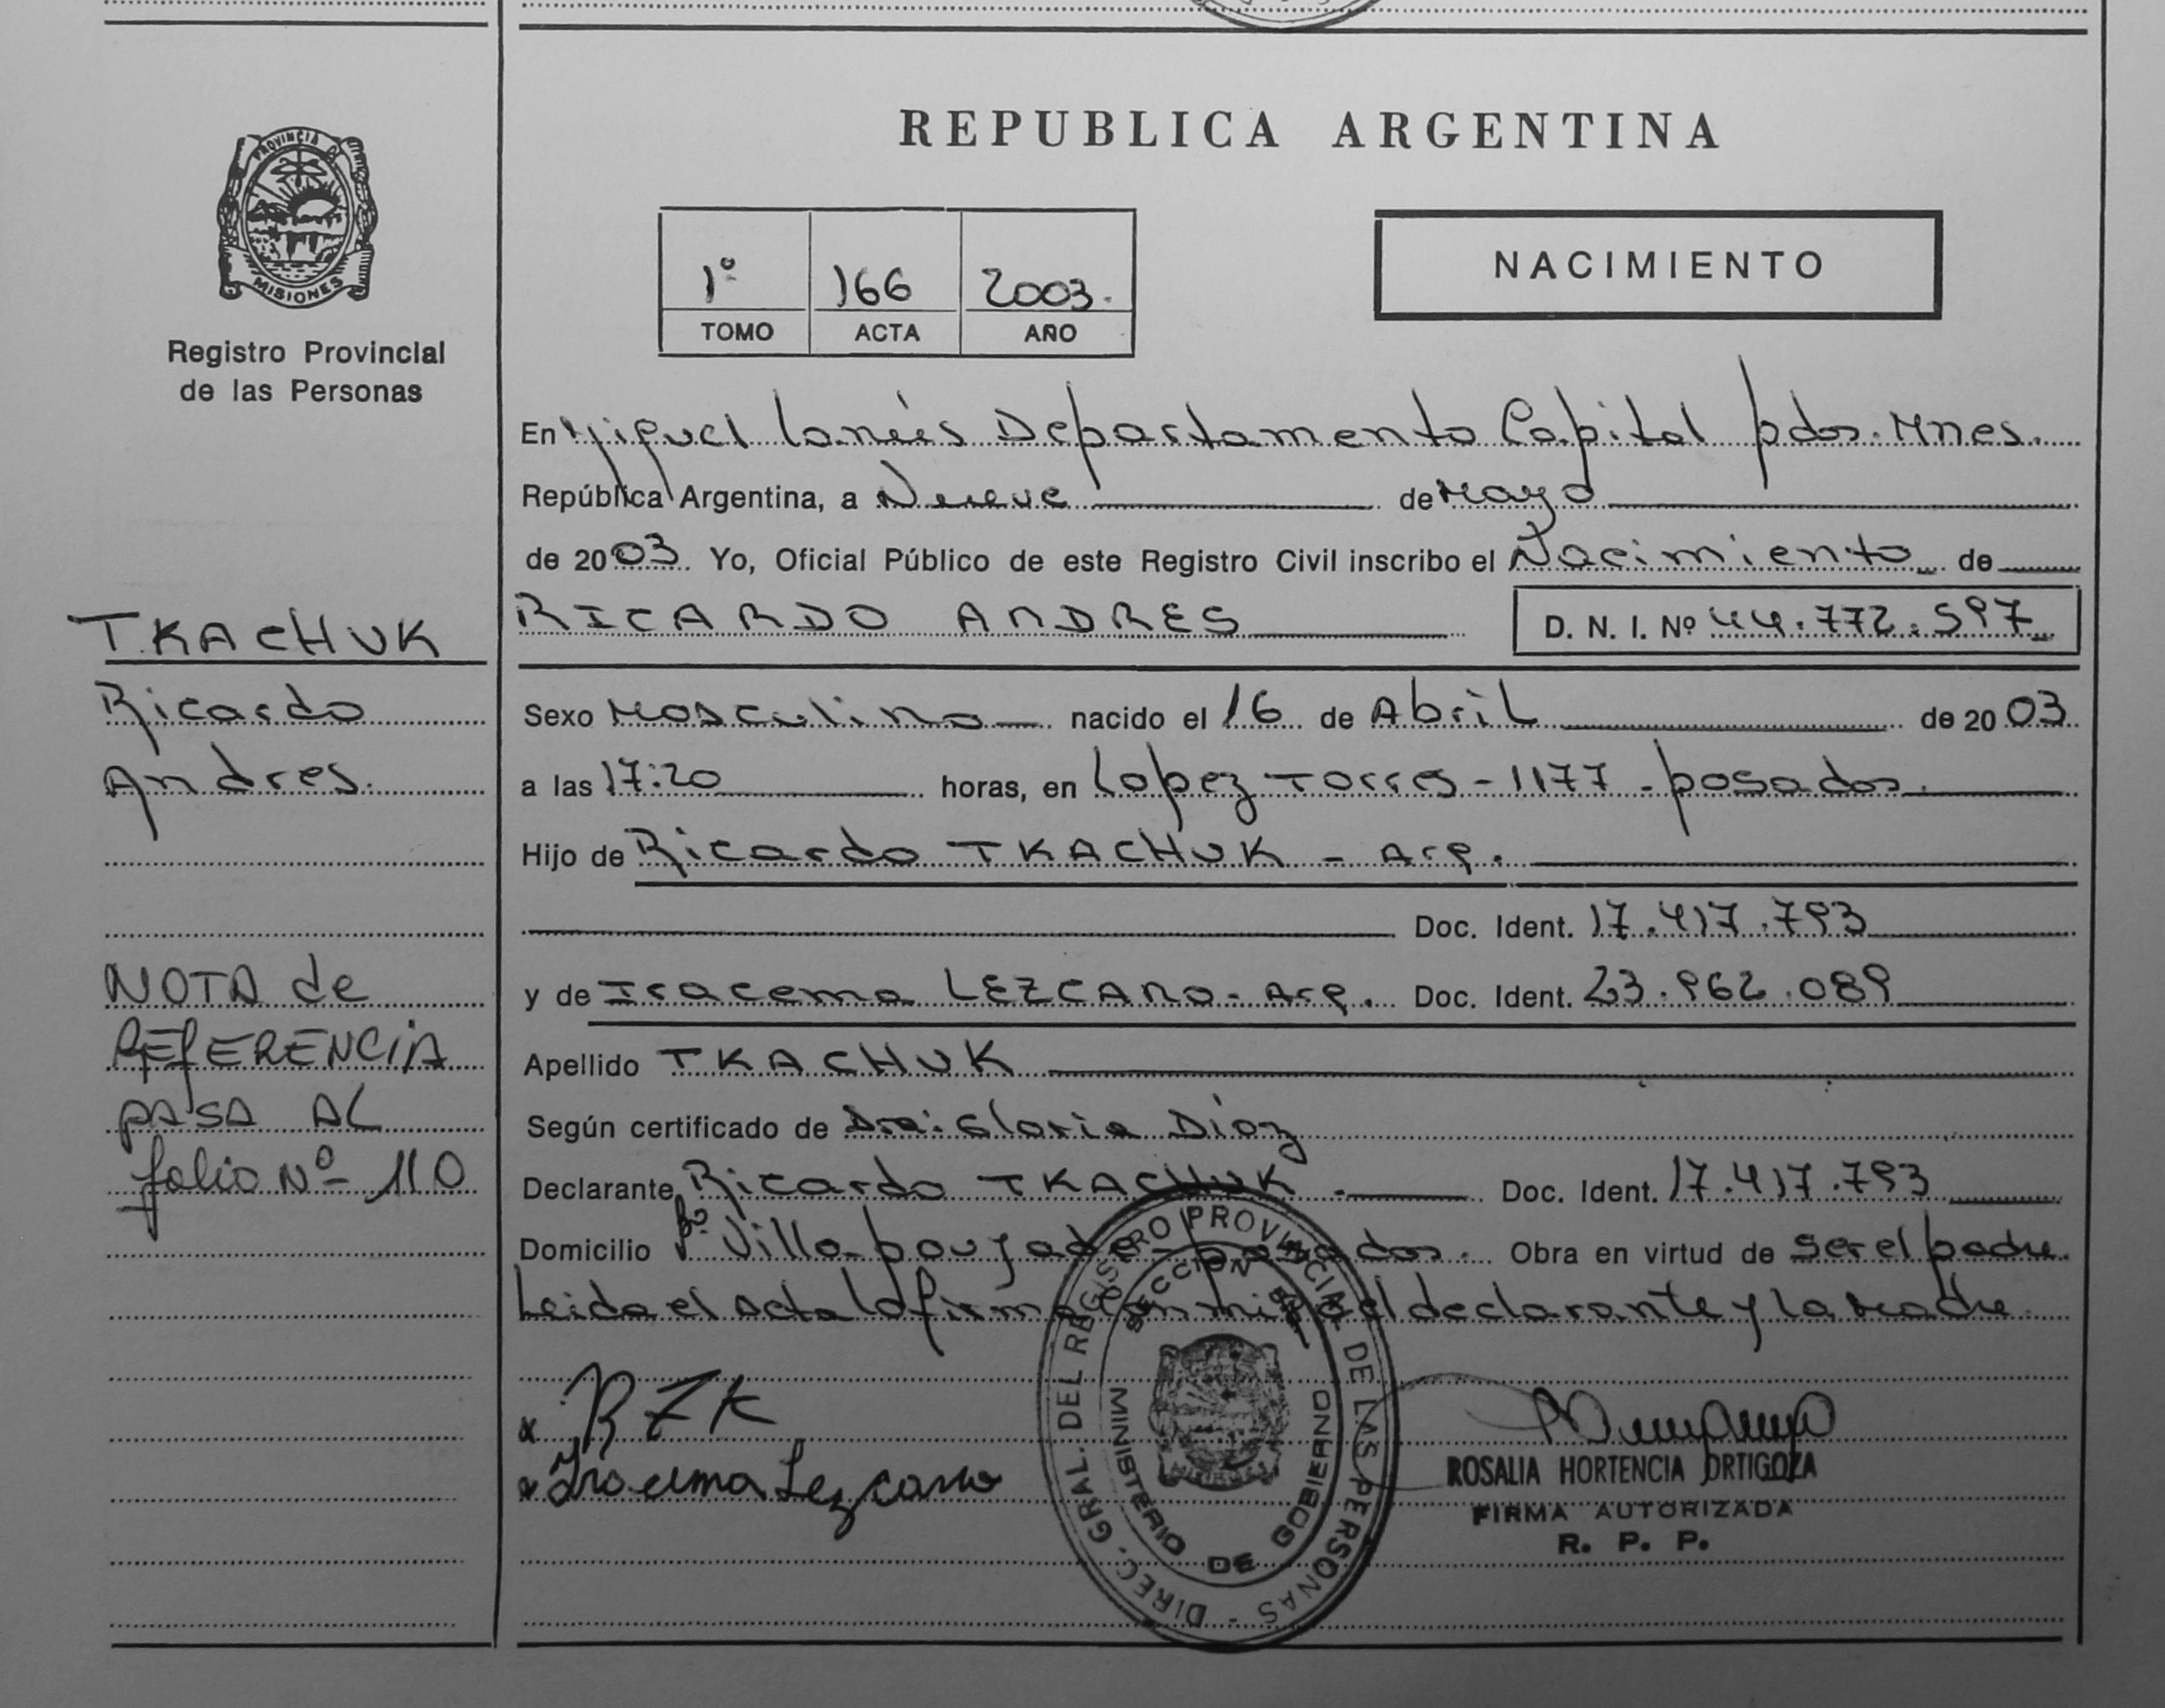 REPUBLICA ARGENTINA
PROVINCIA DE
MISIONES
Registro Provincial
de las Personas
1º 166 2003.
TOMO ACTA AÑO
NACIMIENTO
En Miguel Lanús Departamento Capital pdas. Mnes.
República Argentina, a Nueve de Mayo
de 2003. Yo, Oficial Público de este Registro Civil inscribo el Nacimiento de
RICARDO ANDRES D. N. I. Nº 44.772.597
Sexo Masculino nacido el 16 de Abril de 2003
a las 17:20 horas, en Lopez Torres - 1177 - posadas.
Hijo de Ricardo TKACHUK - Arg.
Doc. Ident. 17.417.793
y de Iracema LEZCANO - Arg. Doc. Ident. 23.962.089
Apellido TKACHUK
Según certificado de Dra: Gloria Díaz
Declarante Ricardo TKACHUK. Doc. Ident. 17.417.793
Domicilio Bº Villa poujade - posadas. Obra en virtud de ser el padre.
Leida el acta la firma conmigo el declarante y la madre.
TKACHUK
Ricardo
Andres.
NOTA de
REFERENCIA
PASA AL
folio Nº - 110
x RTK
x Iracema Lezcano
DIREC. GRAL. DEL REGISTRO PROVINCIAL DE LAS PERSONAS -
SECCION
MINISTERIO DE GOBIERNO
MISIONES
ROSALIA HORTENCIA ORTIGOZA
FIRMA AUTORIZADA
R. P. P.